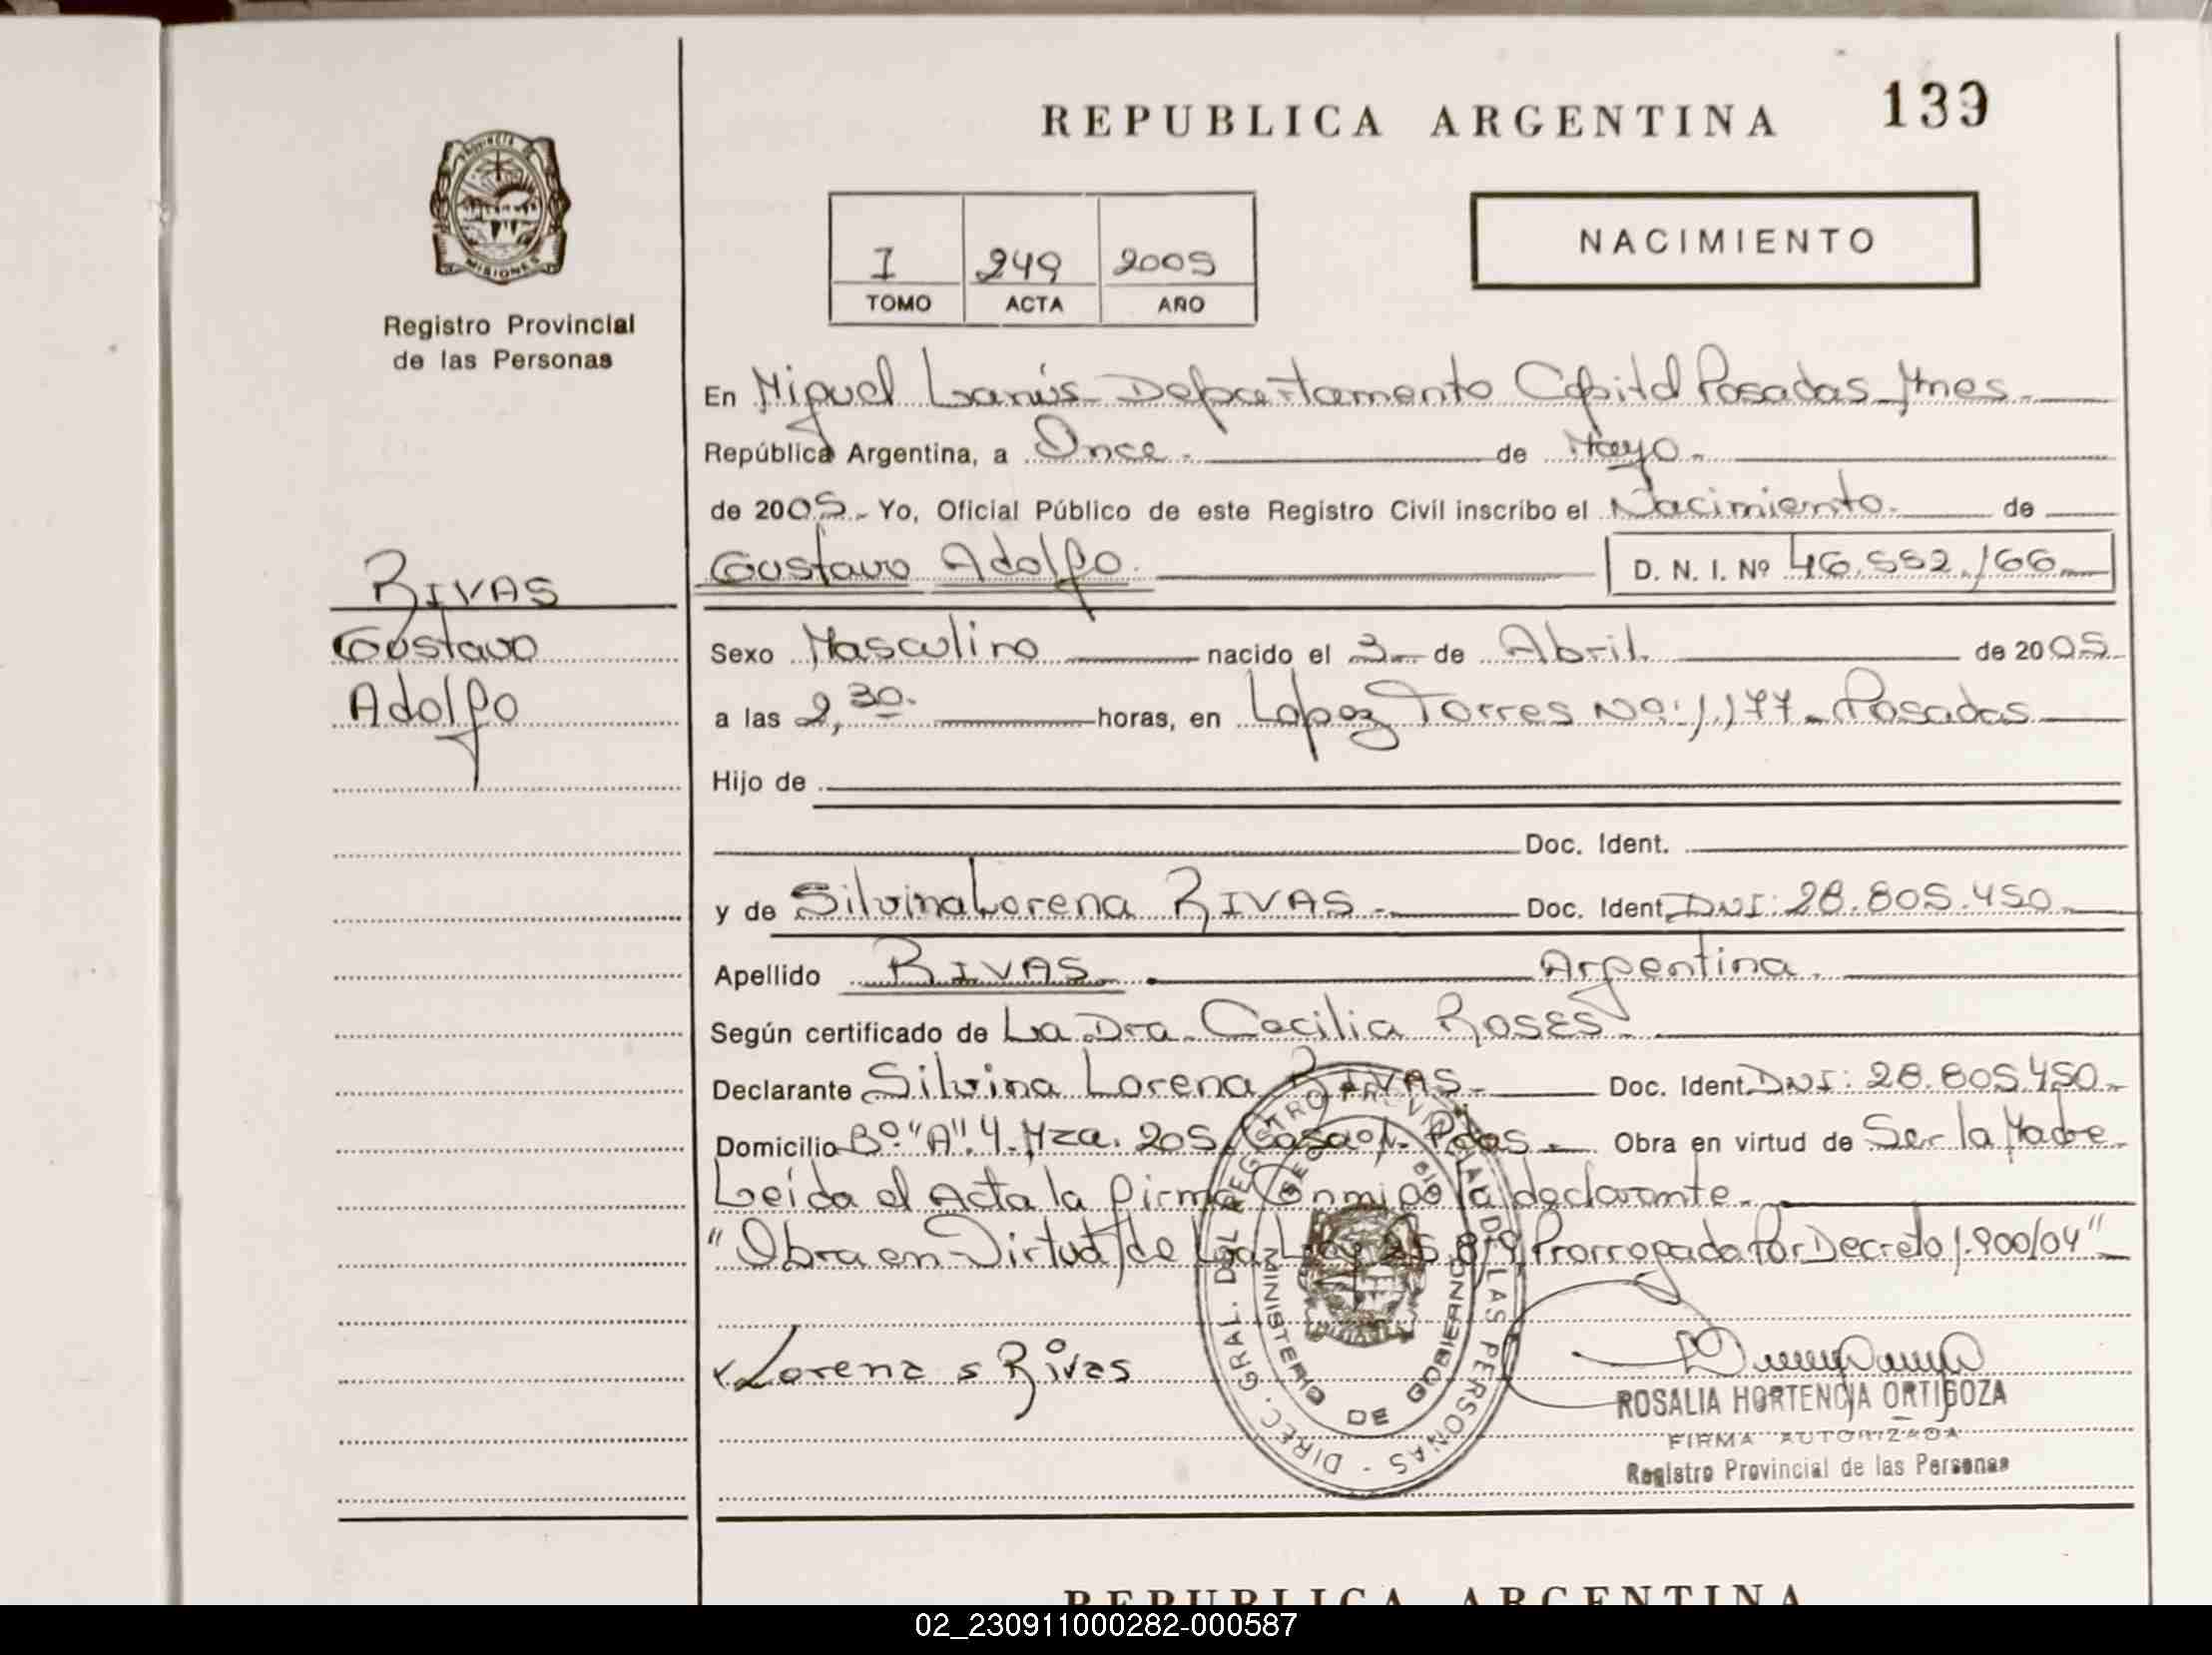 REPUBLICA ARGENTINA 139
PROVINCIA DE
MISIONES
Registro Provincial
de las Personas
I 249 2005
TOMO ACTA AÑO
NACIMIENTO
En Miguel Lanús - Departamento Capital Posadas Mnes.
República Argentina, a Once. de Mayo.
de 2005 - Yo, Oficial Público de este Registro Civil inscribo el Nacimiento. de
Gustavo Adolfo. D. N. I. Nº 46.552.166
RIVAS
Gustavo
Adolfo
Sexo Masculino nacido el 3 de Abril. de 2005
a las 2,30. horas, en Lopez Torres No: 1,177 - Posadas
Hijo de
Doc. Ident.
y de Silvina Lorena RIVAS. Doc. Ident. DNI: 28.805.450
Apellido RIVAS Argentina.
Según certificado de La Dra. Cecilia ROSES
Declarante Silvina Lorena RIVAS. Doc. Ident. DNI: 28.805.450.
Domicilio Bº. "A". 4. Mza. 205. Casa Pdas. Obra en virtud de Ser la Madre
Leida el Acta la firma Conmigo la declarante.
"Obra en Virtud de La Ley Prorrogada Por Decreto 1.900/04"
Lorena s Rivas
DIREC. GRAL. DEL REGISTRO PROVINCIAL DE LAS PERSONAS
MINISTERIO DE GOBIERNO
ROSALIA HORTENCIA ORTIGOZA
FIRMA AUTORIZADA
Registro Provincial de las Personas
REPUBLICA ARGENTINA
02_230911000282-000587